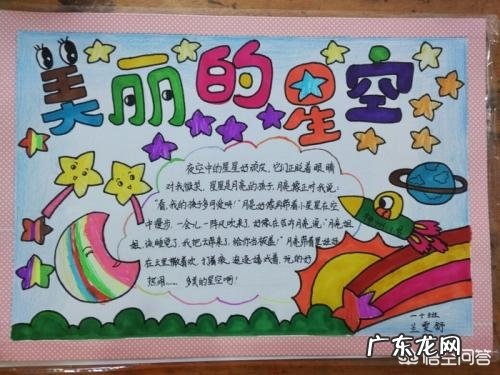 美丽的星空
夜空中的星星好顽皮,它们正眨着眼睛
对我微笑,星星是月亮的孩子,月亮像正对我说:
"看,我的孩子多可爱啊!"月亮好像狗带着小星星在空
中漫步,一会儿一阵风吹来了,好像在告诉月亮说:"月亮姐
姐,该睡觉了,我把云带来了,给你当被盖!"月亮带着星娃娃
在云里撒着欢,打着滚,追逐嬉戏着,玩的好
热闹……多美的星空啊!
一十班
兰雯舒
悟空问答
广东龙网